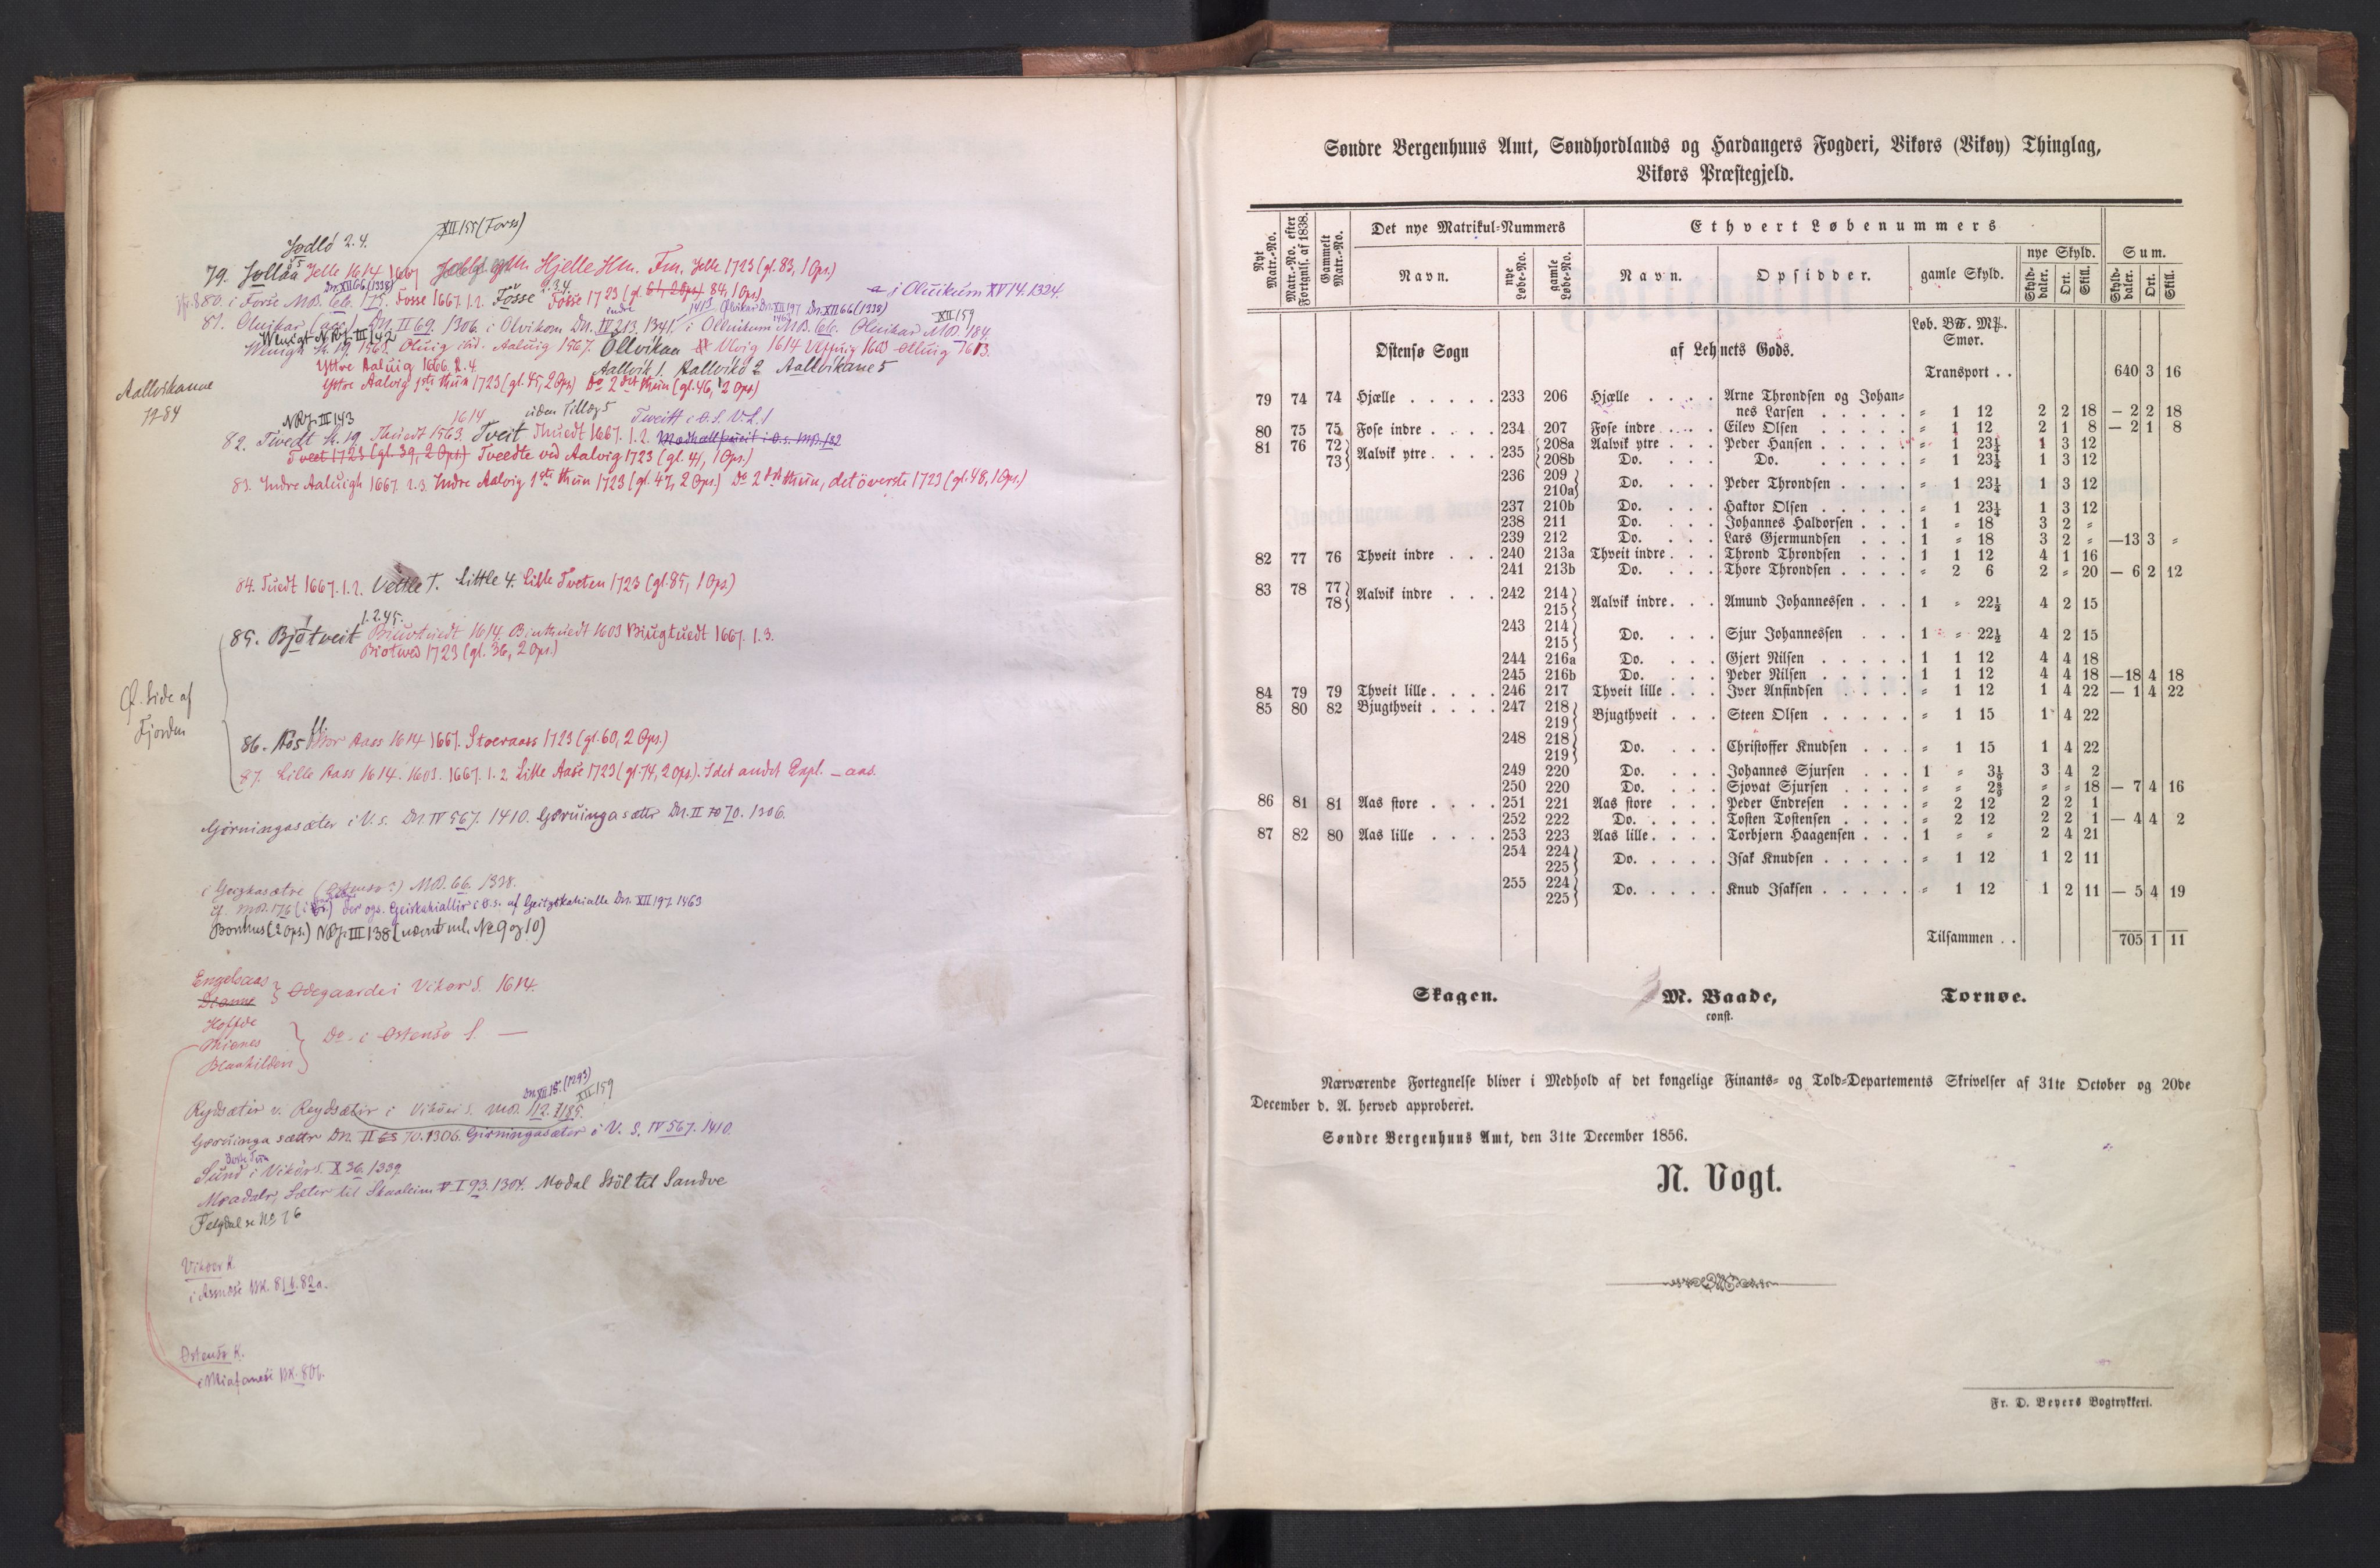 XII 155 (Forss)
Jødlo 2.4.
79. Jøllaa Jelle 1614 1667 Hjelle Hm. Fm. Jelle 1723 (gl. 83, 1 Ops.)
Dn. XII 66 (1338)
80. i Forse MB. 66. 175. Fosse 1667. 1.2. Fösse Fosse 1723 (gl. 84, 1 Ops.) i Oluikum XV 14. 1324.
81. Oluikar Dn. II 69. 1306. i Olvikom Dn. IV 213. 1341. i Olluikum MB. 66. Oluikar MB. 184.
Wenigt NRJ. III 142
Aaluig 1567. Ollvikaa Ulvig 1614
Yttre Aaluig 1666. 2.4. Aallvik 1. Aallvikö 2 Aallvikane 5
Yttre Aalvig 1ste thun 1723 (gl. 45, 2 Ops) Do 2det thun (gl. 46, 2 Ops)
Aallvikanne
77-84
NRJ. III 143 1614 uden Tillæg 5 Tweitt i Ø.S. V.L. 1
82. Twedt K. 19. Thuedt 1563. Tveit Thuedt 1667. 1.2.
Tveet 1723 (gl. 39, 2 Ops.) Tveedte ved Aalvig 1723 (gl. 41, 1 Ops.)
83. Indre Aaluigh 1667. 2.3. Indre Aalvig 1ste thun 1723 (gl. 47, 2 Ops.) Do 2det thun, det överste 1723 (gl. 48, 1 Ops.)
84. Tuedt 1667. 1.2. Vetlle T. Little 4. Lille Tveten 1723 (gl. 85, 1 Ops.)
1.2.45.
85. Bjøtveit Biurtuedt 1614. Binthuedt 1603 Biugtuedt 1667. 1.3.
Biotwed 1723 (gl. 36, 2 Ops.)
Ø. Side af
Fjorden
86. Aos Stor Aass 1614 1667. Storaass 1723 (gl. 60, 2 Ops.)
87. Lille Aass 1614. 1603. 1667. 1.2 Lille Aase 1723 (gl. 74, 2 Ops). I det andet Expl. – aas.
Gjörningasæter i V.s. Dn. IV 567. 1410. Gørvuinga sættr Dn. II 70. 1306.
i Geizkasætre MB. 66. 1328.
cf. MB. 176 der ogs. Geiskahiallir i Ø.s. af Geitzskahialle Dn. XII 197. 1463
Bonhus (2 Ops.) NRJ. III 138 (nævnt ml. No 9 og 10)
Engelsaas
Dranne } Ødegaarde i Vikør S. 1614.
Hoffde
Mianes } Do. i Østensø S. —
Blaakilden
Dn. XII 15. (1293) XII 159
Rydsætir v. Røydsætir i Viköri S. MB. 112. 185.
Gørvuinga sættr Dn. II 70. 1306. Girningasæter i V. S. IV 567. 1410.
Sund i Vikör S. X 36. 1339.
Moadalr, Sæter til Skaaleim I 93. 1304. Modal Stöl til Sandve
Felgdal se No 26
Vikøer K.
i Asmose BK. 81b. 82a.
Østensø K.
i Miafanese BK. 80b.
Søndre Bergenhuus Amt, Søndhordlands og Hardangers Fogderi, Vikørs (Vikøy) Thinglag,
Vikørs Præstegjeld.
Nyt Matr.-No. | Matr.-No. efter Fortegnis. af 1838. | Gammelt Matr.-No. | Det nye Matrikul-Nummers | Ethvert Løbenummers | Sum.
Navn. | nye Løbe-No. | gamle Løbe-No. | Navn. | Opsidder. | gamle Skyld. | nye Skyld. Skylddaler. Ort. Skill. | Skylddaler. Ort. Skill.
Østensø Sogn af Lehnets Gods. Løb. B℔. M℔. Smør.
Transport . . 640 3 16
79 74 74 Hjælle . . . . . 233 206 Hjælle . . . . Arne Throndsen og Johannes Larsen . . . . . „ 1 12 2 2 18 — 2 2 18
80 75 75 Fose indre . . . . 234 207 Fose indre . . . . Eilev Olsen . . . . . „ 1 12 2 1 8 — 2 1 8
81 76 72 73 } Aalvik ytre . . . . 235 { 208a Aalvik ytre . . . Peder Hansen . . . . . „ 1 23¼ 1 3 12
208b Do. . . . Do. . . . . . „ 1 23¼ 1 3 12
236 209 210a } Do. . . . Peder Throndsen . . . . „ 1 23¼ 1 3 12
237 210b Do. . . . Haktor Olsen . . . . . „ 1 23¼ 1 3 12
238 211 Do. . . . Johannes Haldorsen . . . 1 „ 18 3 2 „
239 212 Do. . . . Lars Gjermundsen . . . 1 „ 18 3 2 „ —13 3 „
82 77 76 Thveit indre . . . 240 213a Thveit indre . . . Thrond Throndsen . . . 1 1 12 4 1 16
241 213b Do. . . . Thore Throndsen . . . . „ 2 6 2 „ 20 — 6 2 12
83 78 77 78 } Aalvik indre . . . 242 214 215 } Aalvik indre . . . Amund Johannessen . . . 1 „ 22½ 4 2 15
243 214 215 } Do. . . . Sjur Johannessen . . . 1 „ 22½ 4 2 15
244 216a Do. . . . Gjert Nilsen . . . . . 1 1 12 4 4 18
245 216b Do. . . . Peder Nilsen . . . . . 1 1 12 4 4 18 —18 4 18
84 79 79 Thveit lille . . . . 246 217 Thveit lille . . . Iver Anfindsen . . . . „ 1 12 1 4 22 — 1 4 22
85 80 82 Bjugthveit . . . . 247 218 219 } Bjugthveit . . . Steen Olsen . . . . . „ 1 15 1 4 22
248 218 219 } Do. . . . Christoffer Knudsen . . . „ 1 15 1 4 22
249 220 Do. . . . Johannes Sjursen . . . 1 „ 3⅑ 3 4 2
250 220 Do. . . . Sjovat Sjursen . . . . „ „ 2⁸⁄₉ „ „ 18 — 7 4 16
86 81 81 Aas store . . . . 251 221 Aas store . . . Peder Endresen . . . . „ 2 12 2 2 1
252 222 Do. . . . . Tosten Tostensen . . . . „ 2 12 2 2 1 — 4 4 2
87 82 80 Aas lille . . . . 253 223 Aas lille . . . . Torbjørn Haagensen . . . 1 „ „ 2 4 21
254 224 225 } Do. . . . . Isak Knudsen . . . . . „ 1 12 1 2 11
255 224 225 } Do. . . . . Knud Isaksen . . . . . „ 1 12 1 2 11 — 5 4 19
Tilsammen . . 705 1 11
Skagen. M. Baade, Tornøe.
const.
Nærværende Fortegnelse bliver i Medhold af det kongelige Finants- og Told-Departements Skrivelser af 31te October og 20de
December d. A. herved approberet.
Søndre Bergenhuus Amt, den 31te December 1856.
N. Vogt.
Fr. D. Beyers Bogtrykkeri.